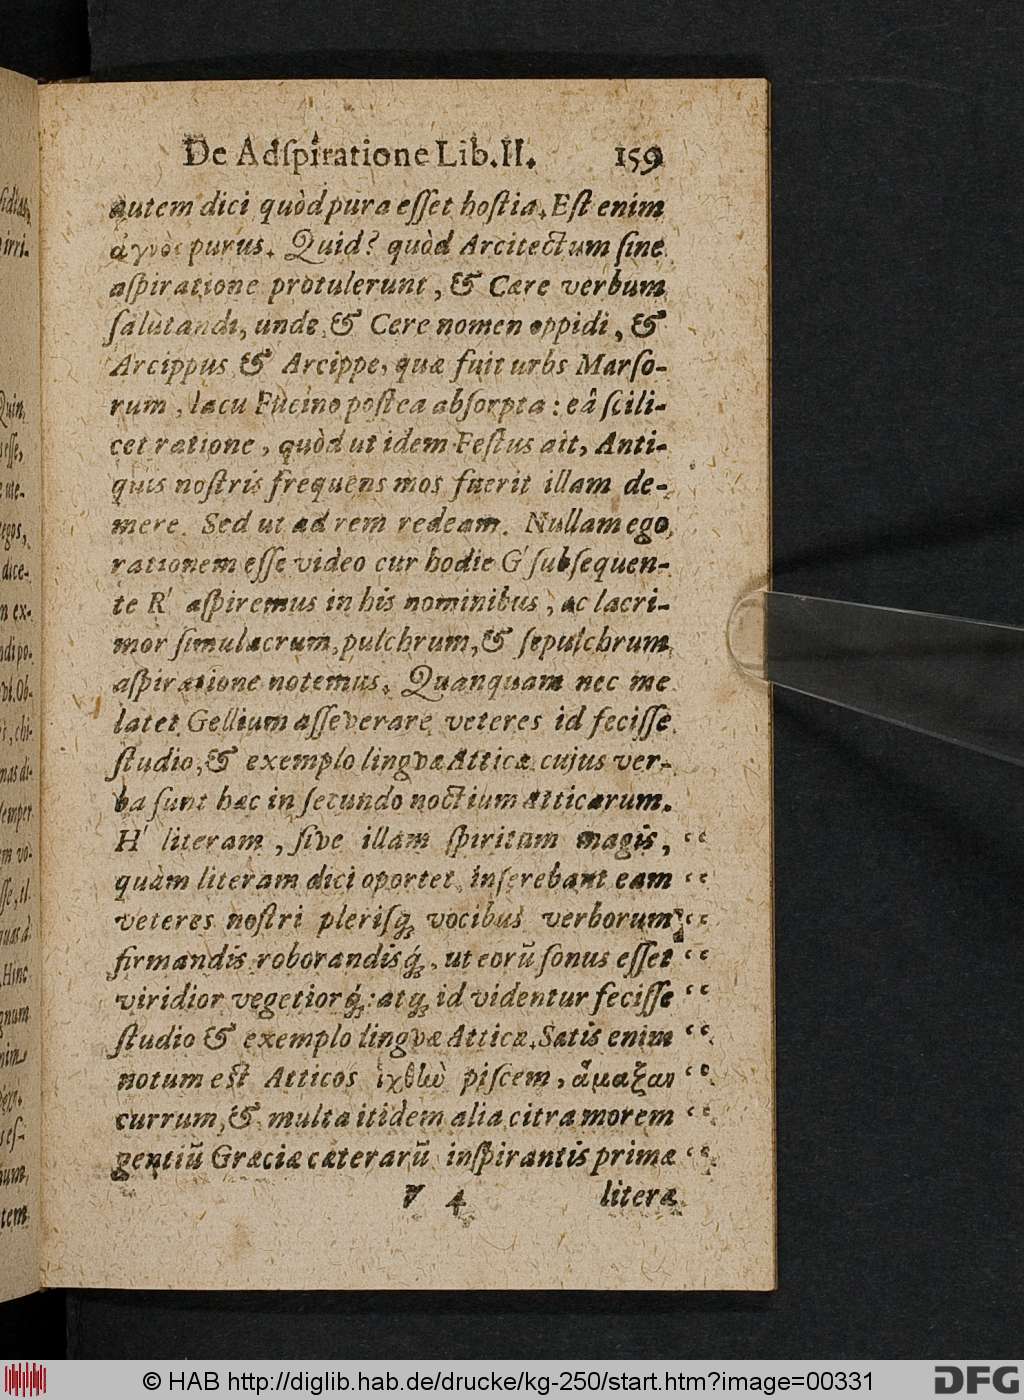 De Adſpiratione Lib. II. 159
autem dici quòd pura eſſet hoſtia. Eſt enim
ἁγνὸς purus. Quid? quòd Arcitectum ſine
aſpiratione protulerunt, & Cære verbum
ſalutandi, unde & Cere nomen oppidi, &
Arcippus & Arcippe, quæ fuit urbs Marſo-
rum, lacu Fucino poſtea abſorpta: eâ ſcili-
cet ratione, quòd ut idem Feſtus ait, Anti-
quis noſtris frequens mos fuerit illam de-
mere. Sed ut ad rem redeam. Nullam ego
rationem eſſe video cur hodie G' ſubſequen-
te R' aſpiremus in his nominibus, ac lacri-
mor ſimulacrum, pulchrum, & ſepulchrum
aſpiratione notemus. Quanquam nec me
latet Gellium aſſeverare veteres id feciſſe
ſtudio, & exemplo lingvæ Atticæ cujus ver-
ba ſunt hæc in ſecundo noctium Atticarum.
H' literam, ſive illam ſpiritum magis,
quàm literam dici oportet, inſerebant eam
veteres noſtri pleriſq; vocibus verborum
firmandis roborandisq́;, ut eorũ ſonus eſſet
viridior vegetiorq́;: atq; id videntur feciſſe
ſtudio & exemplo lingvæ Atticæ. Satis enim
notum eſt Atticos ἱχθὺν piſcem, ἅμαξαν
currum, & multa itidem alia citra morem
gentiũ Græciæ cæterarũ inſpirantis primæ
V 4 literæ
© HAB http://diglib.hab.de/drucke/kg-250/start.htm?image=00331
DFG